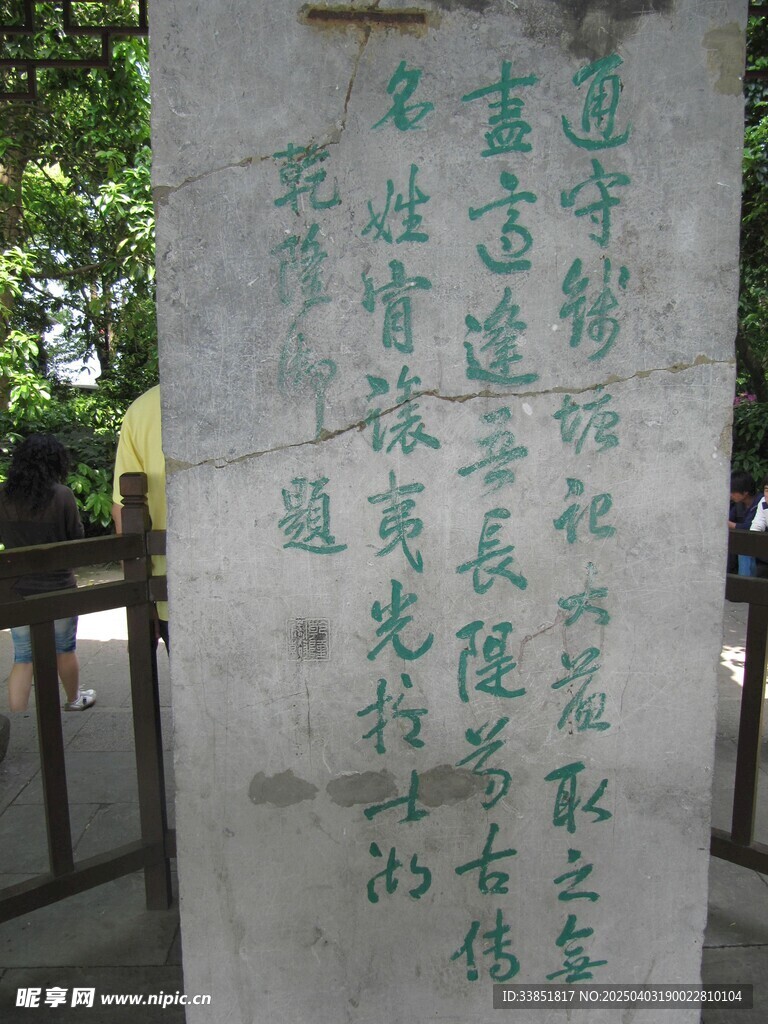 通守錢塘記大蘇取之無
盡適逢吾長隄萬古傳
名姓肯讓夷光擅此湖
乾隆御題
昵享网 www.nipic.cn
ID:33851817 NO:20250403190022810104